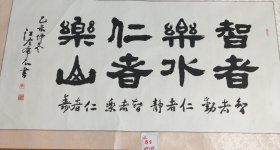 智者
樂水
仁者
樂山
智者動仁者靜智者樂仁者壽
乙亥仲冬
書